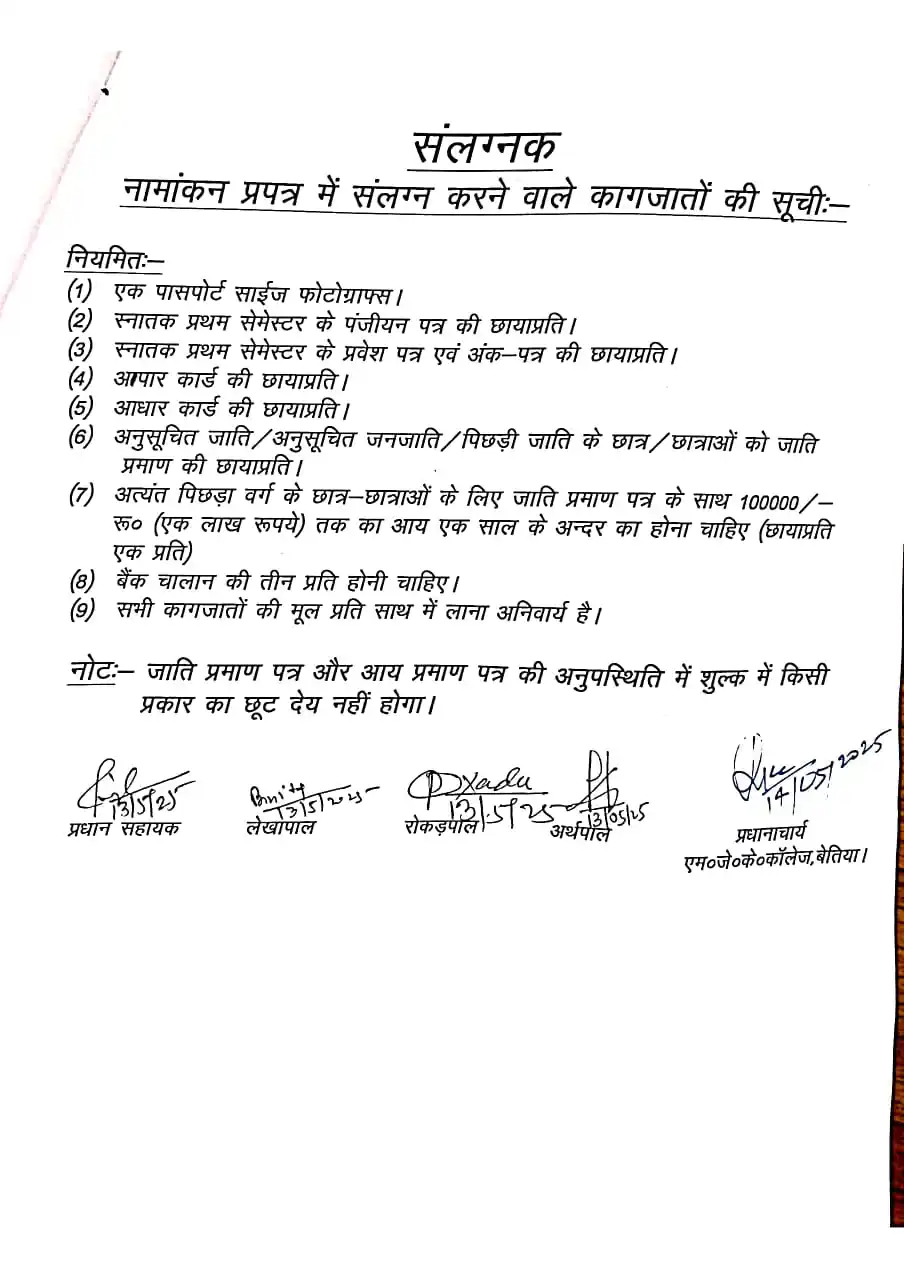 संलग्नक
नामांकन प्रपत्र में संलग्न करने वाले कागजातों की सूचीः–
नियमितः–
(1) एक पासपोर्ट साईज फोटोग्राफ्स।
(2) स्नातक प्रथम सेमेस्टर के पंजीयन पत्र की छायाप्रति।
(3) स्नातक प्रथम सेमेस्टर के प्रवेश पत्र एवं अंक–पत्र की छायाप्रति।
(4) आपार कार्ड की छायाप्रति।
(5) आधार कार्ड की छायाप्रति।
(6) अनुसूचित जाति/अनुसूचित जनजाति/पिछड़ी जाति के छात्र/छात्राओं को जाति
प्रमाण की छायाप्रति।
(7) अत्यंत पिछड़ा वर्ग के छात्र–छात्राओं के लिए जाति प्रमाण पत्र के साथ 100000/–
रू० (एक लाख रूपये) तक का आय एक साल के अन्दर का होना चाहिए (छायाप्रति
एक प्रति)
(8) बैंक चालान की तीन प्रति होनी चाहिए।
(9) सभी कागजातों की मूल प्रति साथ में लाना अनिवार्य है।
नोटः– जाति प्रमाण पत्र और आय प्रमाण पत्र की अनुपस्थिति में शुल्क में किसी
प्रकार का छूट देय नहीं होगा।
13/5/25 13/5/2025 13/5/25 13/05/25 14/05/2025
प्रधान सहायक लेखापाल रोकड़पाल अर्थपाल प्रधानाचार्य
एम०जे०के०कॉलेज,बेतिया।